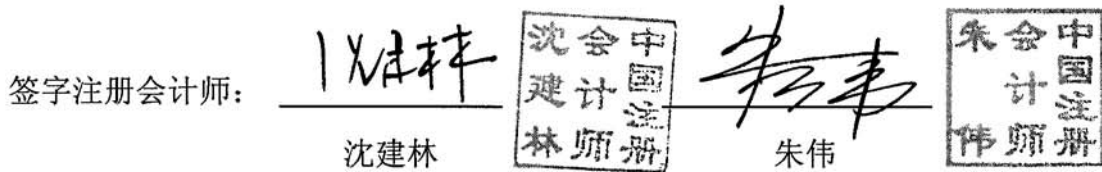 签字注册会计师：
沈建林
中国注册
会计师
沈建林
朱伟
朱伟
中国注册
会计师
朱伟